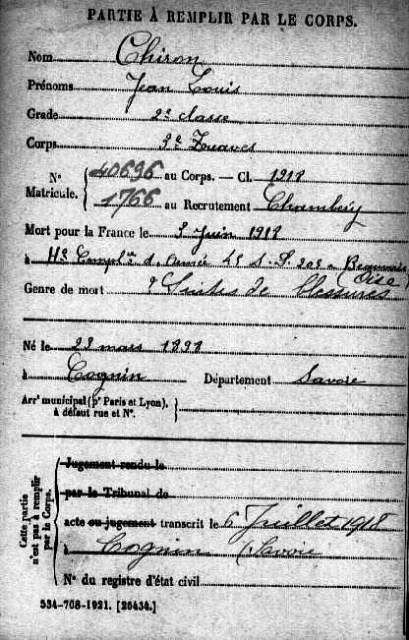 PARTIE À REMPLIR PAR LE CORPS.
Nom Chiron
Prénoms Jean Louis
Grade 2e classe
Corps Zouaves
No 40696 au Corps. — Cl. 1918
Matricule. 1766 au Recrutement Chambéry
Mort pour la France le 3 Juin 1918
à Hal Compl.re d'Armée 45 S.P. 203 à Beauvais Oise
Genre de mort Suites de Blessures
Né le mars
à Cognin Département Savoie
Arrt municipal (pr Paris et Lyon),
à défaut rue et No.
Cette partie n'est pas à remplir par le Corps.
Jugement rendu le
par le Tribunal de
acte ou jugement transcrit le 6 Juillet 1918
à Cognin (Savoie
No du registre d'état civil
534-708-1921. [26434.]